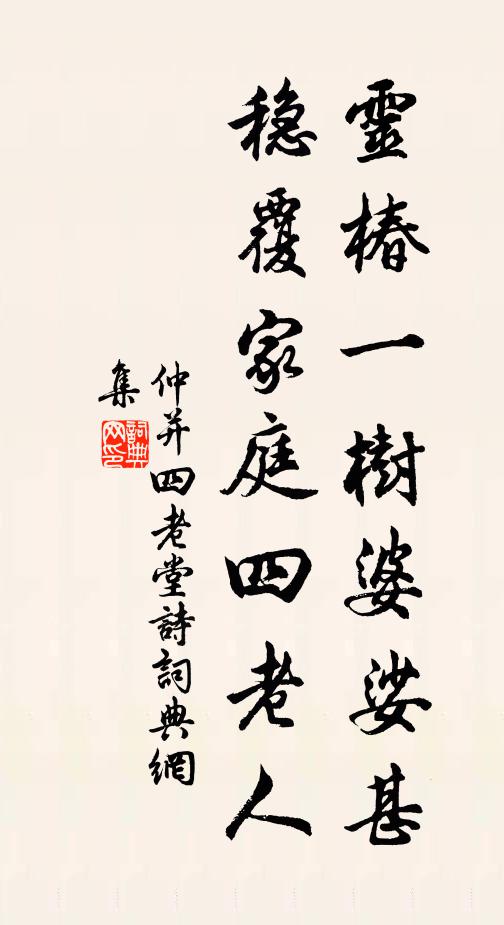 靈椿一樹婆娑甚
穏覆家庭四老人
仲并四老堂詩詞典網
集
詞典
网印